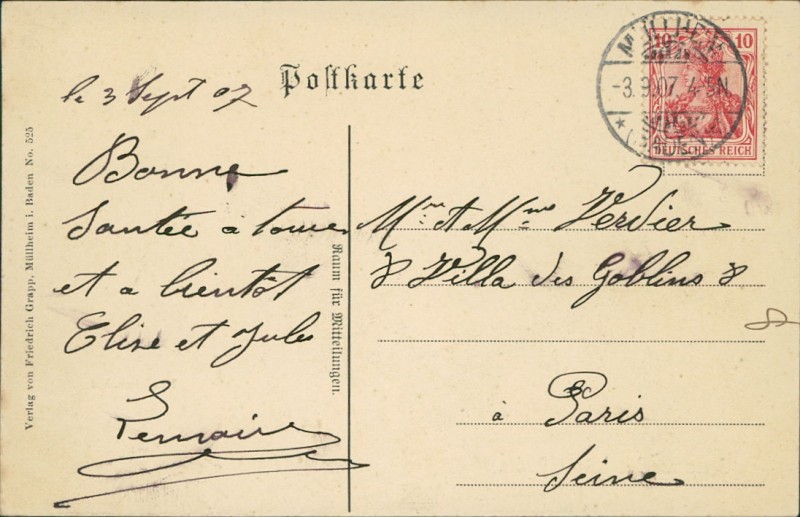 Postkarte
le 3 Sept 07
Bonne
Santée a tous
et a bientôt
Elise et Jules
Lemaire
Mr et Mme Verdier
8 Villa des Goblins 8
à Paris
Seine
Raum für Mitteilungen.
Verlag von Friedrich Grapp, Müllheim i. Baden No. 525
10 10
DEUTSCHES REICH
MÜLLHEIM
-3.9.07. 4-5N